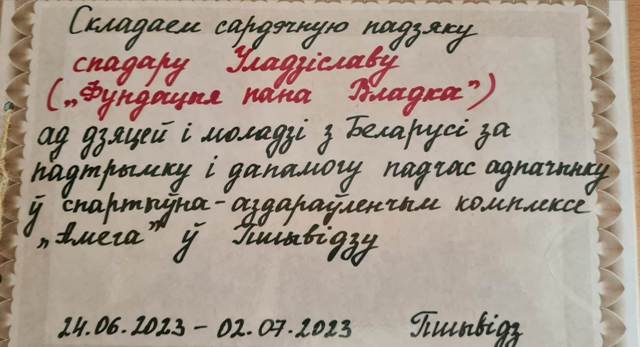 Складаем сардэчную падзяку
спадару Уладзіславу
(„Фундацыя пана Владка”)
ад дзяцей і моладзі з Беларусі за
падтрымку і дапамогу падчас адпачынку
ў спартыўна-аздараўленчым комплексе
„Амега” ў Пшывідзу
24.06.2023 – 02.07.2023 Пшывідз